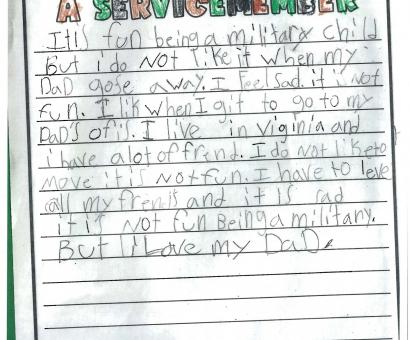 A SERVICEMEMBER
It is fun being a military child
But i do NOT like it when my
DaD gose away. I feel sad. it is Not
fun. I lik when I git to go to my
DaD's ofis. I live in viginia and
i have alot of frend. I do Not like to
move it is Not fun. I have to leve
all my frenis and it is sad
it is Not fun Being a military.
But i Love my DaD.